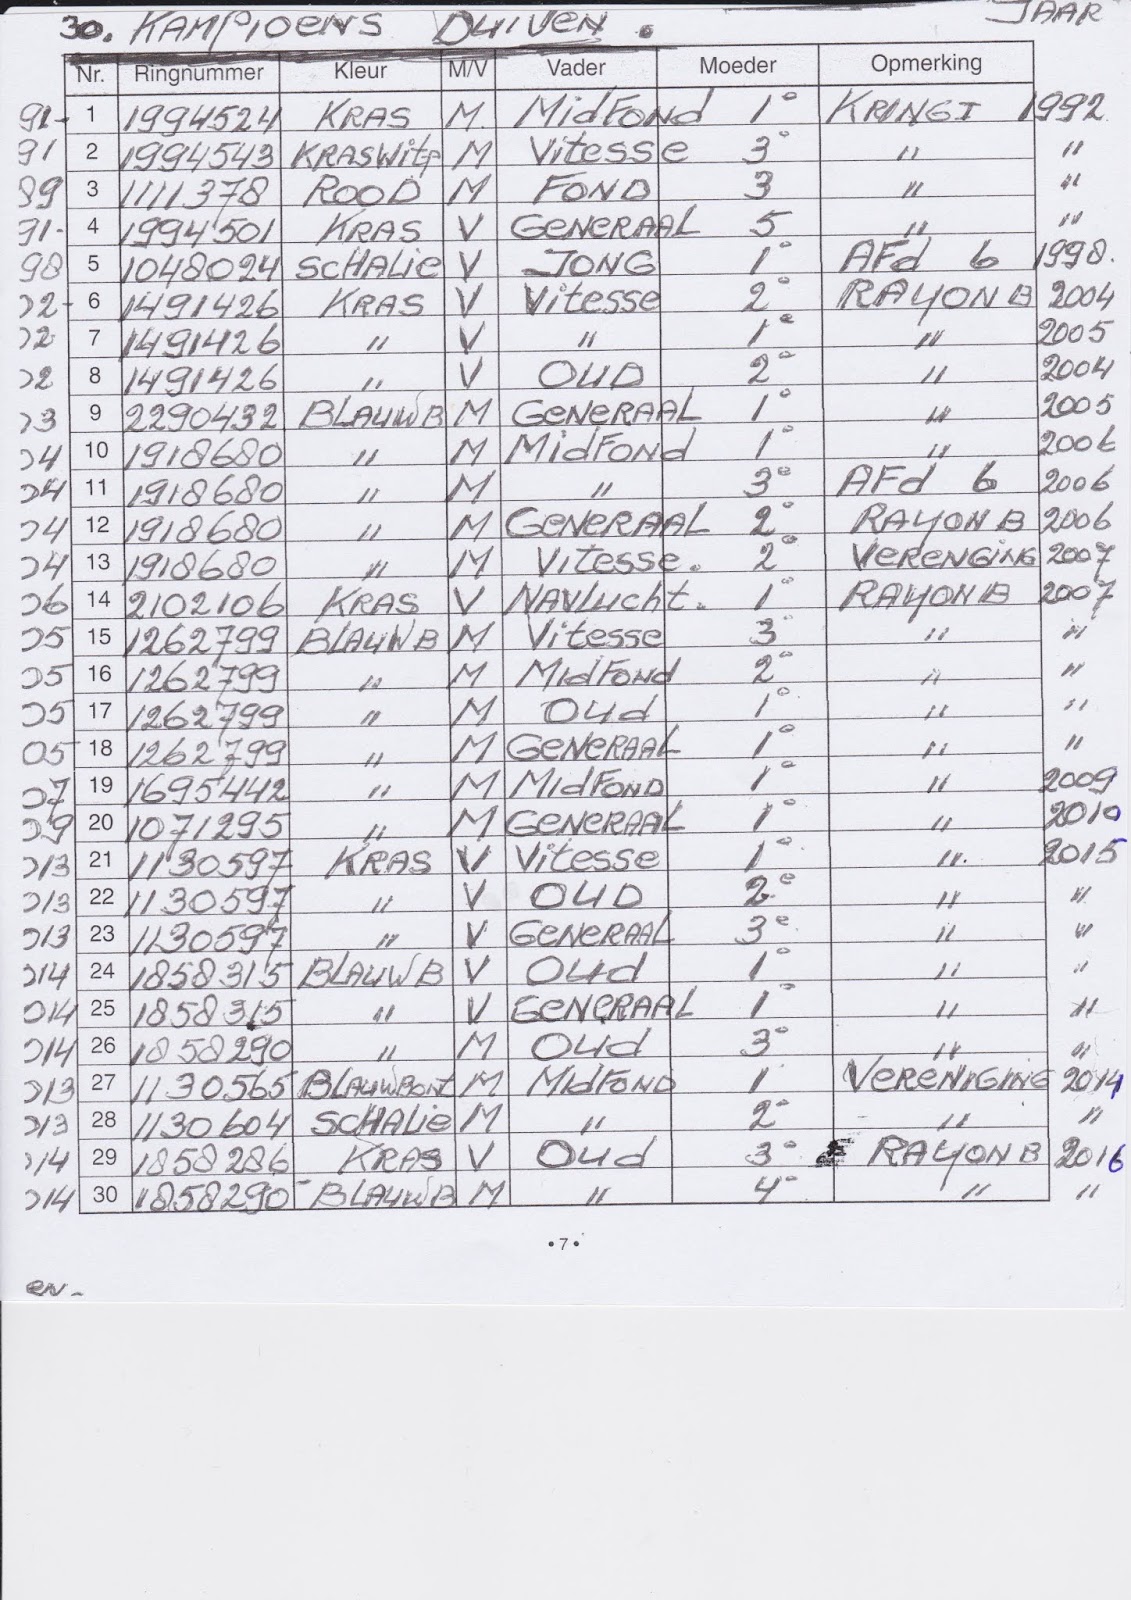 30. KAMPIOENS DUIVEN. JAAR
Nr. Ringnummer Kleur M/V Vader Moeder Opmerking
91- 1 1994524 KRAS M. MidFond 1e KRING I 1992
91 2 1994543 KRASWitp M Vitesse 3e " "
89 3 1111378 ROOD M FOND 3 " "
91- 4 1994501 KRAS V GENERAAL 5 " "
98 5 1048024 SCHALie V JONG 1e AFd 6 1998.
02- 6 1491426 KRAS V Vitesse 2e RAYON B 2004
02 7 1491426 " V " 1e " 2005
02 8 1491426 " V OUD 2e " 2004
03 9 2290432 BLAUWB M GENERAAL 1e " 2005
04 10 1918680 " M MidFond 1e " 2006
04 11 1918680 " M " 3e AFd 6 2006
04 12 1918680 " M GENERAAL 2e RAYON B 2006
04 13 1918680 " M Vitesse. 2e VERENGING 2007
06 14 2102106 KRAS V NAVLUCHT. 1e RAYON B 2007
05 15 1262799 BLAUWB M Vitesse 3e " "
05 16 1262799 " M MidFond 2e " "
05 17 1262799 " M Oud 1e " "
05 18 1262799 " M GENERAAL 1e " "
07 19 1695442 " M MidFOND 1e " 2009
09 20 1071295 " M GENERAAL 1e " 2010
013 21 1130597 KRAS V Vitesse 1e " 2015
013 22 1130597 " V OUD 2e " "
013 23 1130597 " V GENERAAL 3e " "
014 24 1858315 BLAUWB V Oud 1e " "
014 25 1858315 " V GENERAAL 1e " "
014 26 1858290 " M Oud 3e " "
013 27 1130565 BLAUWBONT M MidFOND 1e VERENIGING 2014
013 28 1130604 SCHALie M " 2e " "
014 29 1858286 KRAS V Oud 3e RAYON B 2016
014 30 1858290 BLAUWB M " 4e " "
•7•
en-